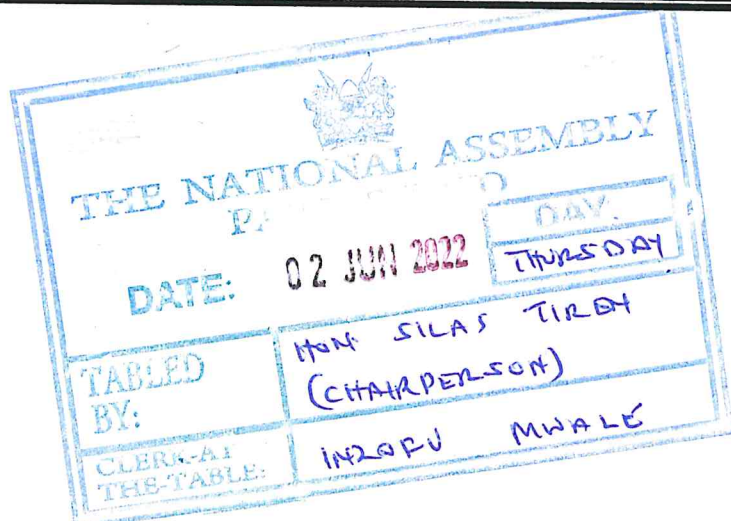 THE NATIONAL ASSEMBLY
DATE: 02 JUN 2022
DAY.
THURSDAY
TABLED BY:
HON SILAS TIREN
(CHAIRPERSON)
CLERK-AT THE-TABLE:
INZOFU MWALE